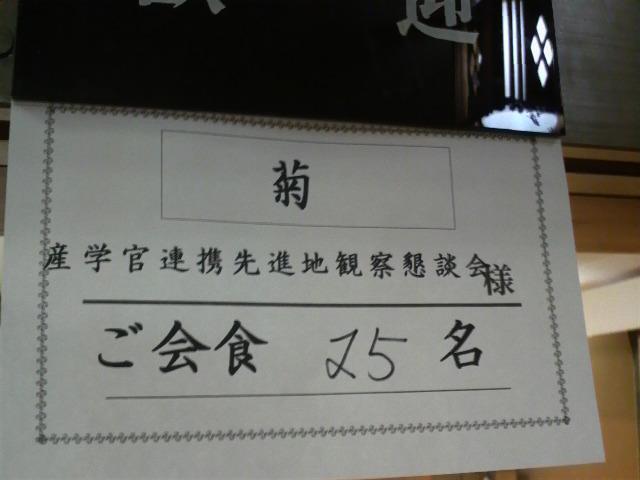 歓迎
菊
産学官連携先進地観察懇談会様
ご会食 25 名